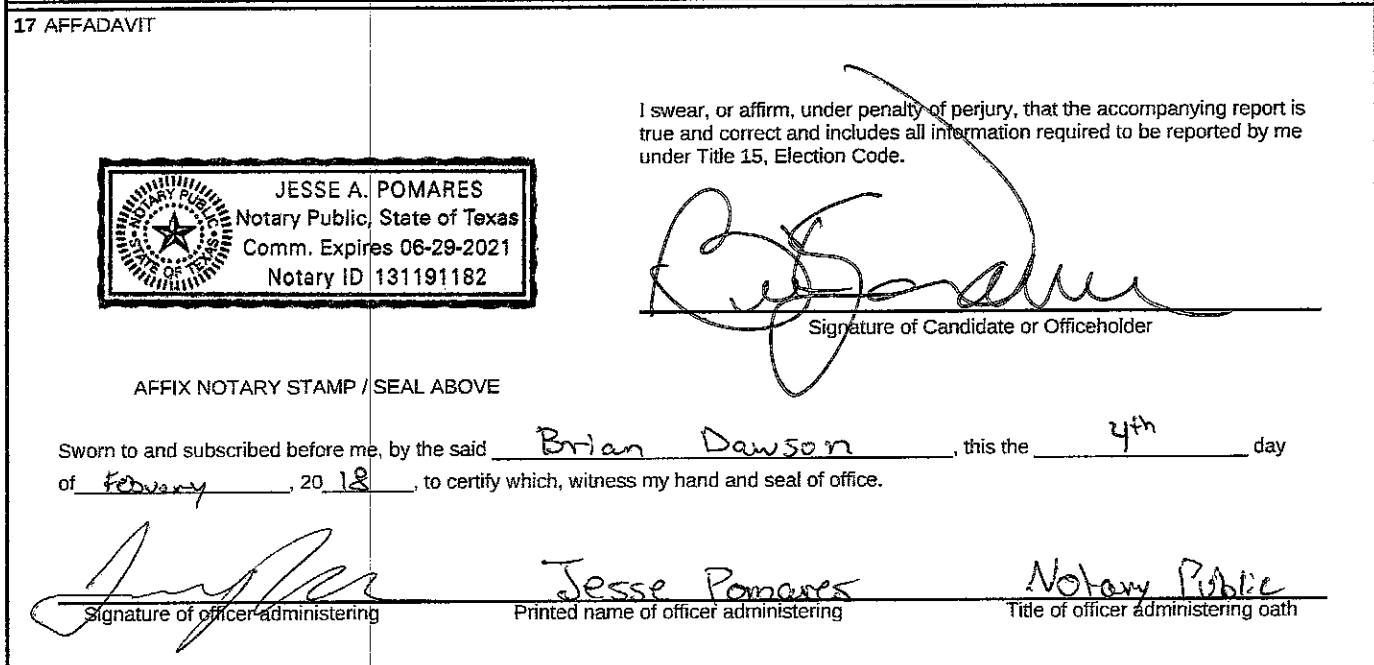 17 AFFADAVIT
I swear, or affirm, under penalty of perjury, that the accompanying report is
true and correct and includes all information required to be reported by me
under Title 15, Election Code.
JESSE A. POMARES
Notary Public, State of Texas
Comm. Expires 06-29-2021
Notary ID 131191182
NOTARY PUBLIC
STATE OF TEXAS
Signature of Candidate or Officeholder
AFFIX NOTARY STAMP / SEAL ABOVE
Sworn to and subscribed before me, by the said Brian Dawson, this the 4th day
of February, 20 18, to certify which, witness my hand and seal of office.
Jesse Pomares Notary Public
Signature of officer administering Printed name of officer administering Title of officer administering oath